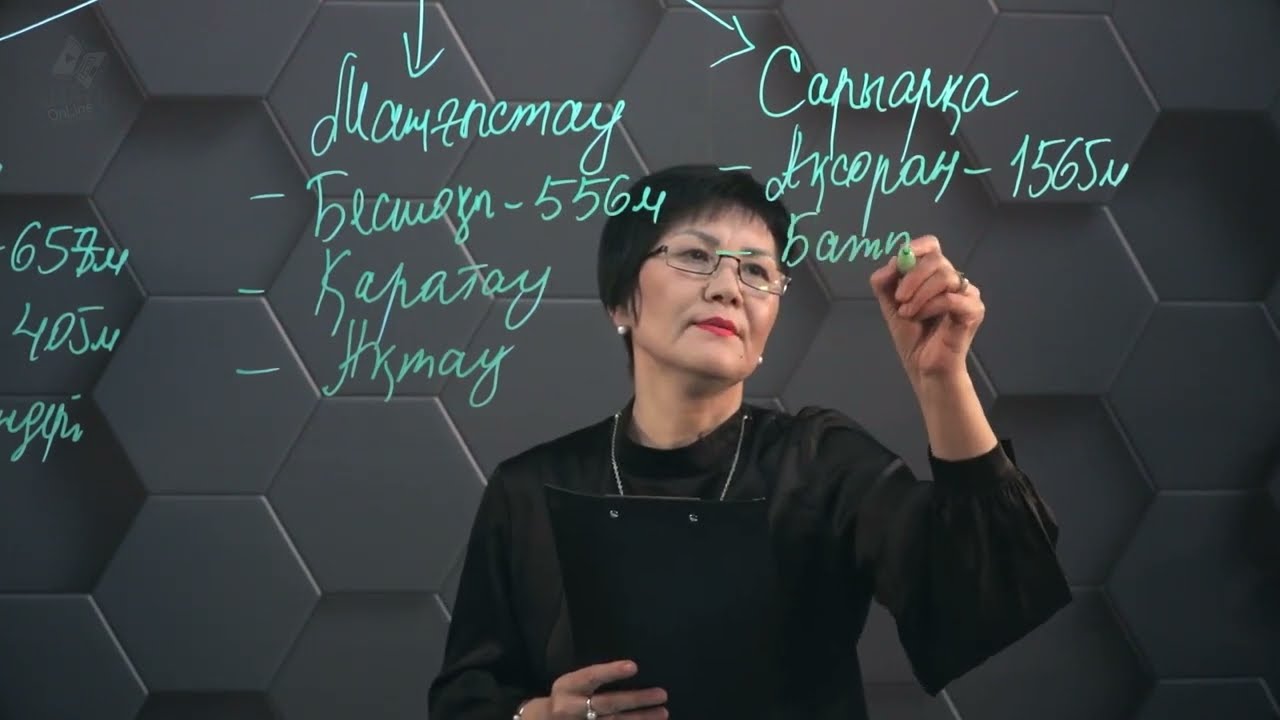 Маңғыстау
- Бесшоқы - 556м
- Қаратау
- Ақтау
Сарыарқа
- Ақсораң - 1565м
Батп
657м
405м
OnLine